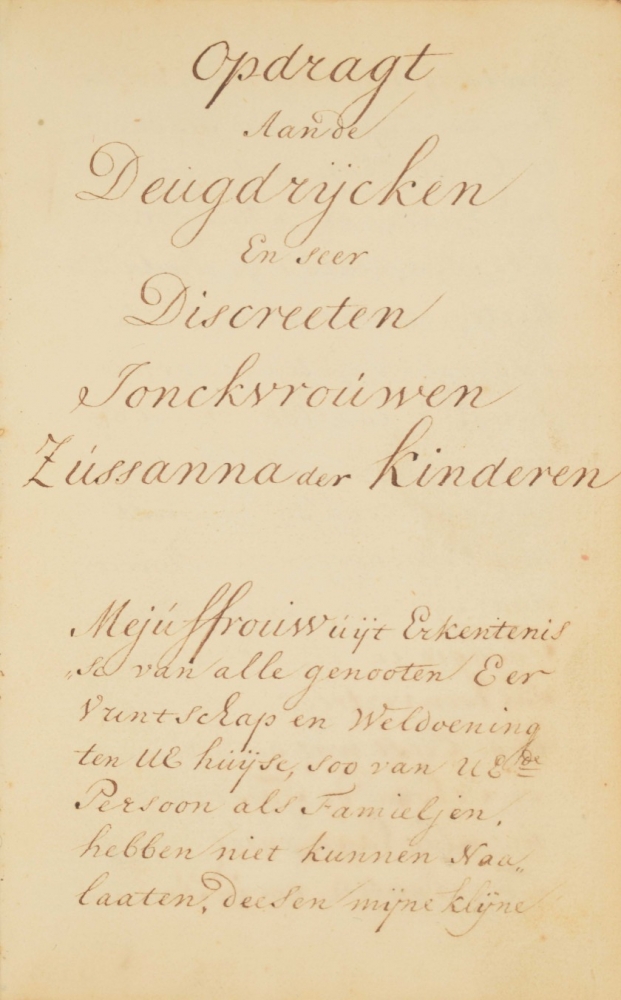 Opdragt
Aan de
Deugdrÿcken
En seer
Discreeten
Jonckvroúwen
Zússanna der Kinderen
Mejúffrouw úÿt Erkentenis
„se van alle genooten Eer
Vrintschap en Weldoening
ten UE húÿse, soo van UE de
Persoon als Famieljen,
hebben niet kunnen Naa„
laaten, deesen mÿne klÿne